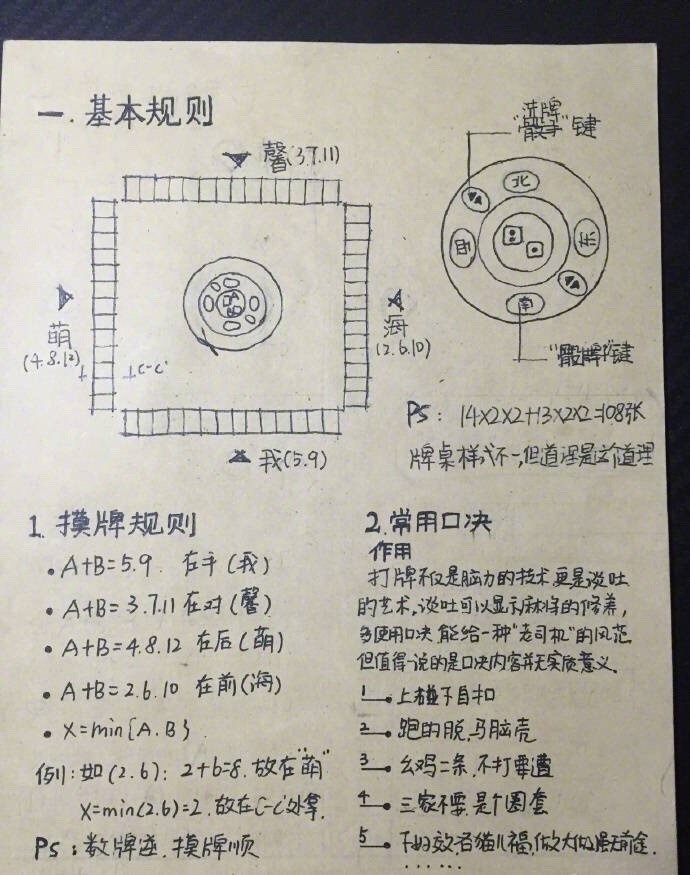 一.基本规则
馨(3.7.11)
萌
(4.8.12)
C-C'
海
(2.6.10)
我(5.9)
洗牌
"骰子"键
北
西
东
南
"骰牌"键
PS: 14×2×2+13×2×2=108张
牌桌样式不一,但道理是这个道理
1.摸牌规则
• A+B=5.9. 在手(我)
• A+B=3.7.11 在对(馨)
• A+B=4.8.12 在后(萌)
• A+B=2.6.10 在前(海)
• X=min{A.B}
例:如(2.6): 2+6=8.放在"萌"
X=min(2.6)=2.放在C-C'处拿.
PS:数牌逆.摸牌顺
2.常用口决
作用
打牌不仅是脑力的技术更是谈吐
的艺术,谈吐可以显示麻将的修养,
多使用口决能给一种"老司机"的风范
但值得一说的是口决内容并无实质意义.
1 上碰下自扣
2 跑的脱,马脑壳
3 幺鸡二条,不打要遭
4 三家不要,是个圈套
5 猫儿福,做大做强无前途.
······